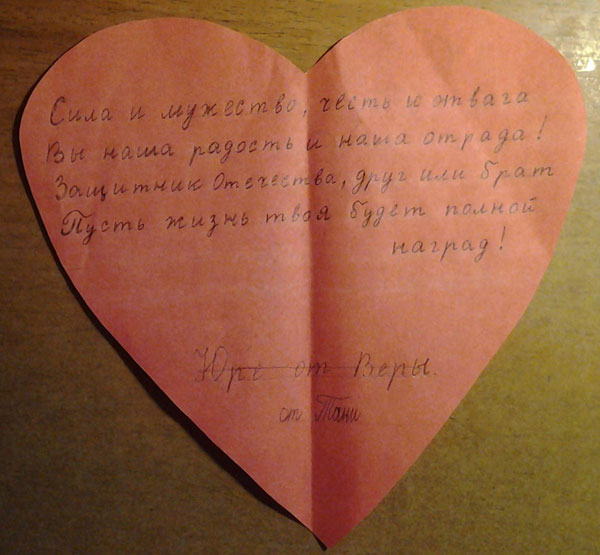 Сила и мужество, честь и отвага
Вы наша радость и наша отрада!
Защитник Отечества, друг или брат
Пусть жизнь твоя будет полной
наград!
Юре от Веры.
от Тани